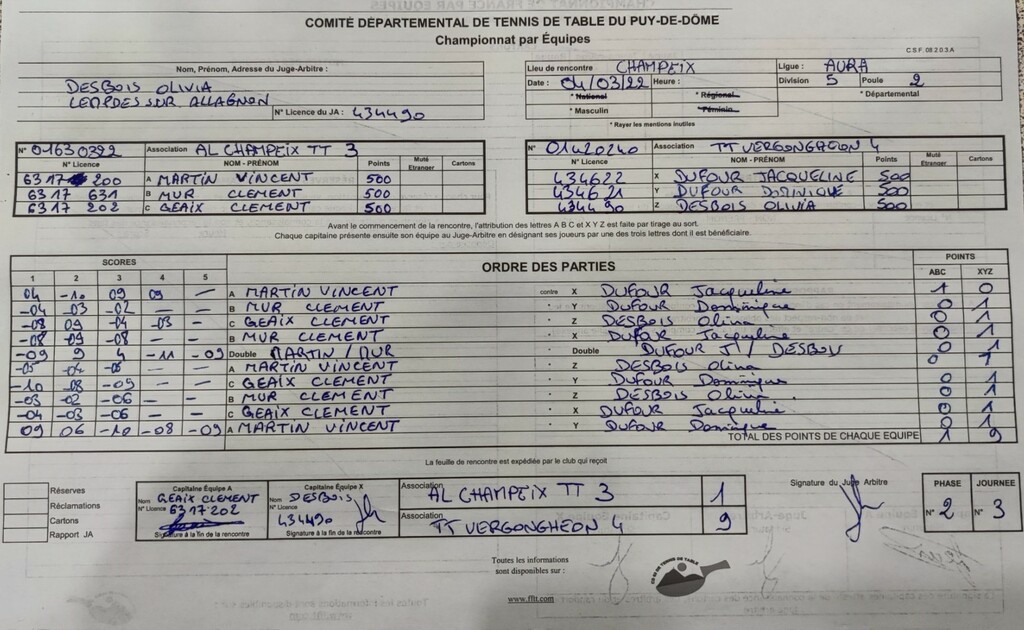 COMITÉ DÉPARTEMENTAL DE TENNIS DE TABLE DU PUY-DE-DÔME
Championnat par Équipes
C.S.F. 08 2 0 3 A
Nom, Prénom, Adresse du Juge-Arbitre :
DESBOIS OLIVIA
LEMPDES SUR ALLAGNON
N° Licence du JA : 434490
Lieu de rencontre CHAMPEIX Ligue : AURA
Date : 04/03/22 Heure : Division 5 Poule 2
* National * Régional * Départemental
* Masculin * Féminin
* Rayer les mentions inutiles
N° 01630322 Association AL CHAMPEIX TT 3
N° Licence NOM - PRÉNOM Points Muté Etranger Cartons
6317 200 A MARTIN VINCENT 500
6317 631 B MUR CLEMENT 500
6317 202 C GEAIX CLEMENT 500
N° 01420240 Association TT VERGONGHEON 4
N° Licence NOM - PRÉNOM Points Muté Etranger Cartons
434622 X DUFOUR JACQUELINE 500
434621 Y DUFOUR DOMINIQUE 500
434490 Z DESBOIS OLIVIA 500
Avant le commencement de la rencontre, l'attribution des lettres A B C et X Y Z est faite par tirage au sort.
Chaque capitaine présente ensuite son équipe au Juge-Arbitre en désignant ses joueurs par une des trois lettres dont il est bénéficiaire.
SCORES ORDRE DES PARTIES POINTS
1 2 3 4 5 ABC XYZ
04 -10 09 09 — A MARTIN VINCENT contre X DUFOUR Jacqueline 1 0
-04 -03 -02 — — B MUR CLEMENT " Y DUFOUR Dominique 0 1
-08 09 -04 -03 — C GEAIX CLEMENT " Z DESBOIS Olivia 0 1
-08 -09 -08 — — B MUR CLEMENT " X DUFOUR Jacqueline 0 1
-09 9 4 -11 -09 Double MARTIN / MUR " Double DUFOUR J / DESBOIS 0 1
-05 -04 -06 — — A MARTIN VINCENT " Z DESBOIS Olivia 0 1
-10 -08 -09 — — C GEAIX CLEMENT " Y DUFOUR Dominique 0 1
-03 -02 -06 — — B MUR CLEMENT " Z DESBOIS Olivia 0 1
-04 -03 -06 — — C GEAIX CLEMENT " X DUFOUR Jacqueline 0 1
09 06 -10 -08 -09 A MARTIN VINCENT " Y DUFOUR Dominique 0 1
TOTAL DES POINTS DE CHAQUE EQUIPE 1 9
La feuille de rencontre est expédiée par le club qui reçoit
Réserves
Réclamations
Cartons
Rapport JA
Capitaine Équipe A
Nom GEAIX CLEMENT
N° Licence 6317 202
Signature à la fin de la rencontre
Capitaine Équipe X
Nom DESBOIS
N° Licence 434490
Signature à la fin de la rencontre
Association AL CHAMPEIX TT 3 1
Association TT VERGONGHEON 4 9
Signature du Juge Arbitre
PHASE JOURNEE
N° 2 N° 3
Toutes les informations
sont disponibles sur :
www.fftt.com